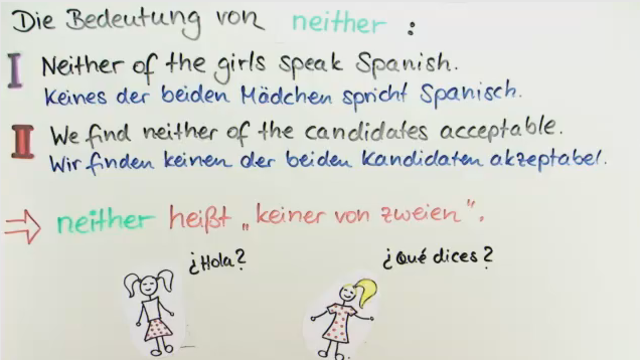 Die Bedeutung von neither :
I Neither of the girls speak Spanish.
Keines der beiden Mädchen spricht Spanisch.
II We find neither of the candidates acceptable.
Wir finden keinen der beiden Kandidaten akzeptabel.
⇒ neither heißt „keiner von zweien".
¿Hola?
¿Qué dices?